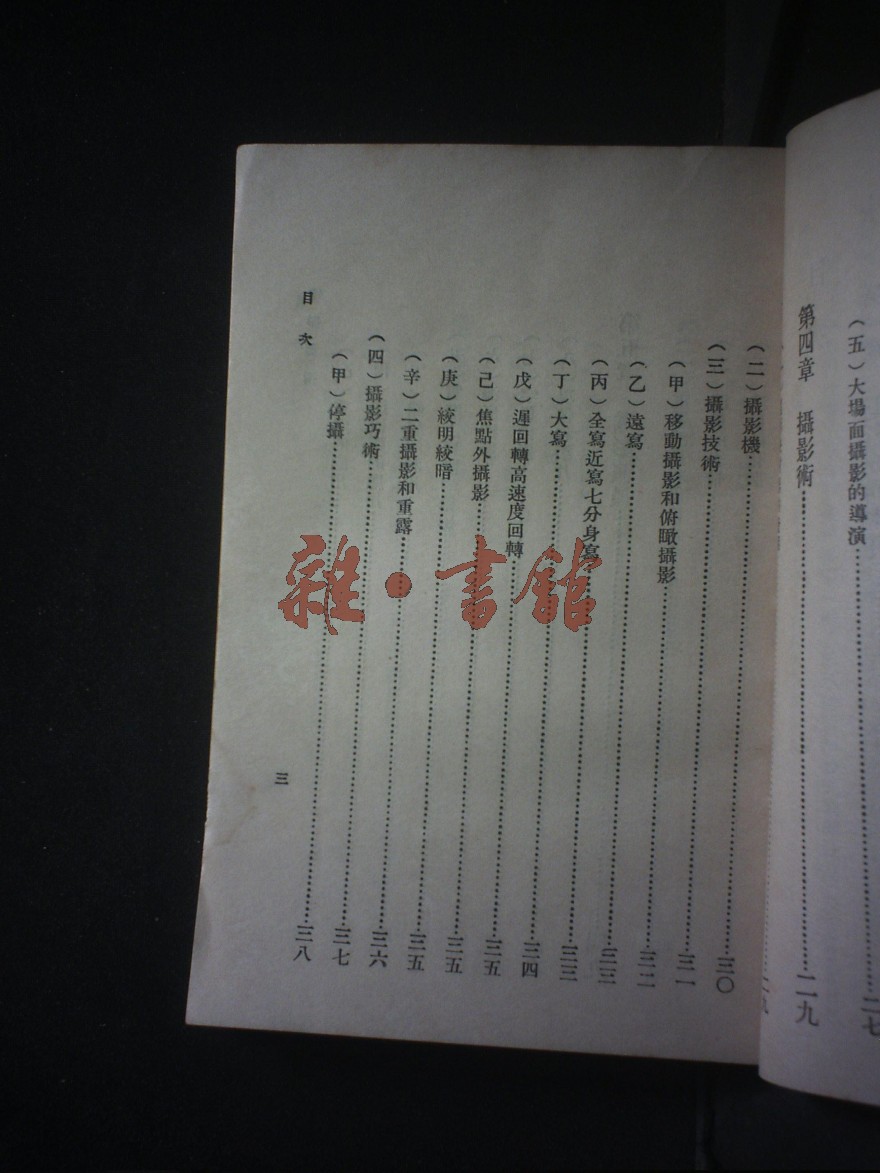 （五）大場面攝影的導演……二七
第四章　攝影術……二九
（二）攝影機……三〇
（三）攝影技術……三一
（甲）移動攝影和俯瞰攝影……三二
（乙）遠寫……三三
（丙）全寫近寫七分身寫……三三
（丁）大寫……三四
（戊）遲回轉高速度回轉……三五
（己）焦點外攝影……三五
（庚）絞明絞暗……三五
（辛）二重攝影和重露……三六
（四）攝影巧術……三七
（甲）停攝……三八
目次
三
雜·書館